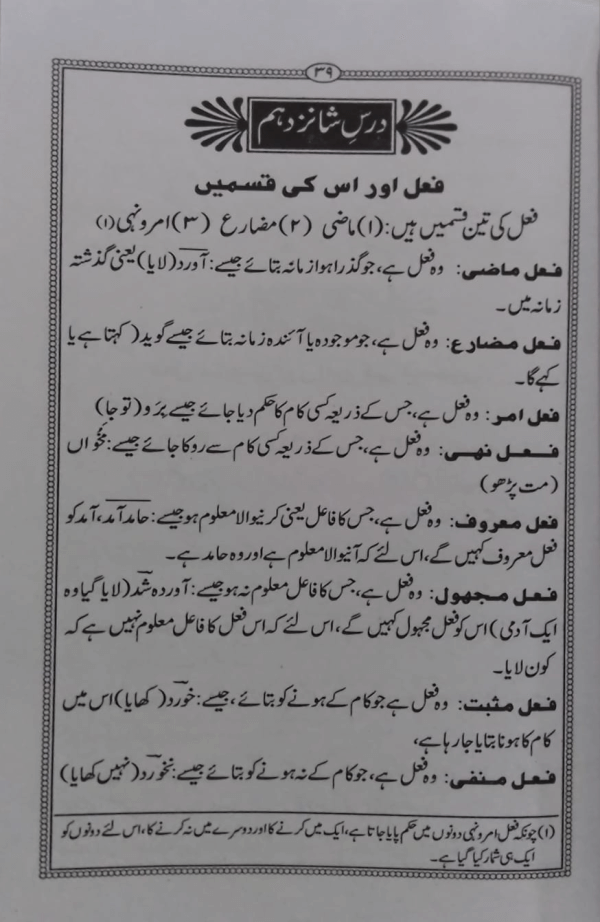 ۳۹
درسِ شانزدہم
فعل اور اس کی قسمیں
فعل کی تین قسمیں ہیں: (۱) ماضی (۲) مضارع (۳) امر ونہی (۱)
فعل ماضی: وہ فعل ہے، جو گذرا ہوا زمانہ بتائے جیسے: آورد (لایا) یعنی گذشتہ
زمانہ میں۔
فعل مضارع: وہ فعل ہے، جو موجودہ یا آئندہ زمانہ بتائے جیسے گوید (کہتا ہے یا
کہے گا۔
فعل امر: وہ فعل ہے، جس کے ذریعہ کسی کام کا حکم دیا جائے جیسے بِرَو (تو جا)
فعل نهی: وہ فعل ہے، جس کے ذریعہ کسی کام سے روکا جائے جیسے: مخواں
(مت پڑھو)
فعل معروف: وہ فعل ہے، جس کا فاعل یعنی کرنیوالا معلوم ہو جیسے: حامد آمد، آمد کو
فعل معروف کہیں گے، اس لئے کہ آنیوالا معلوم ہے اور وہ حامد ہے۔
فعل مجہول: وہ فعل ہے، جس کا فاعل معلوم نہ ہو جیسے: آوردہ شد (لایا گیا وہ
ایک آدمی) اس کو فعل مجہول کہیں گے، اس لئے کہ اس فعل کا فاعل معلوم نہیں ہے کہ
کون لایا۔
فعل مثبت: وہ فعل ہے جو کام کے ہونے کو بتائے، جیسے: خورد (کھایا) اس میں
کام کا ہونا بتایا جا رہا ہے،
فعل منفی: وہ فعل ہے، جو کام کے نہ ہونے کو بتائے جیسے: نخورد (نہیں کھایا)
(۱) چونکہ فعل امر ونہی دونوں میں حکم پایا جاتا ہے، ایک میں کرنے کا اور دوسرے میں نہ کرنے کا، اس لئے دونوں کو
ایک ہی شمار کیا گیا ہے۔